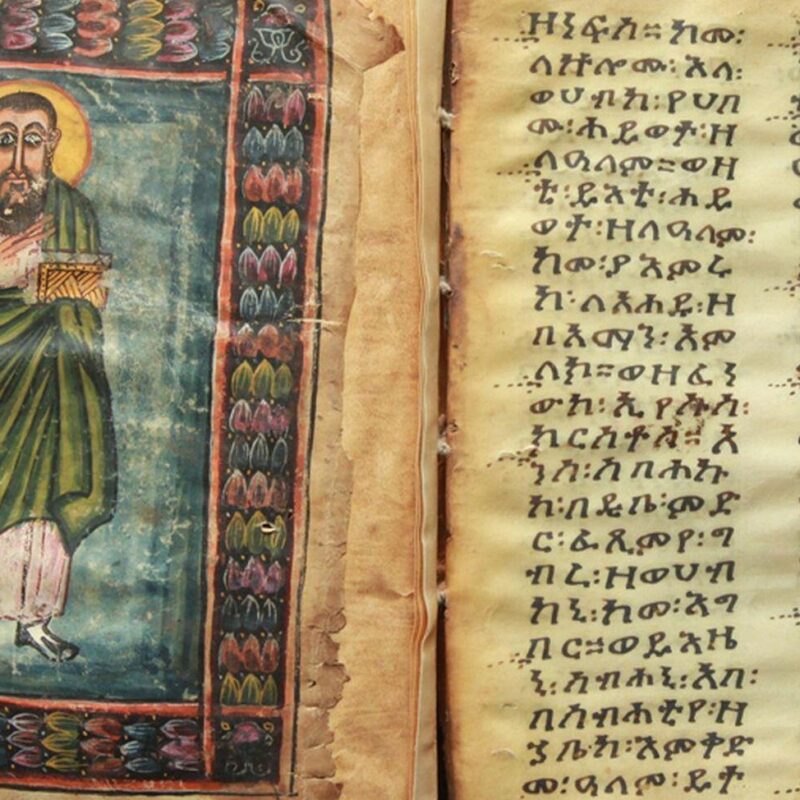 ዘነፍስ። ከመ፡
ለኵሎሙ፡ እለ፡
ወሀብከ፡ የሀበ
ሙ፡ ሕይወት፡ ዘ
ለዓለም። ወዛ
ቲ፡ ይእቲ፡ ሕይ
ወት፡ ዘለዓለም፡
ከመ፡ ያአምሩ
ከ፡ ለአሐዱ፡ ዘ
በአማን፡ አም
ላክ። ወዘፈነ
ውከ፡ ኢየሱስ፡
ክርስቶስ። አ
ንሰ፡ ሰባሕኩ
ከ፡ በዲበ፡ ምድ
ር፡ ፈጺምየ፡ ግ
ብረ፡ ዘወሀብ
ከኒ፡ ከመ፡ እግ
በር። ወይእዜ
ኒ፡ ሰብሐኒ፡ አባ፡
በስብሐቲየ፡ ዘ
ኃቤከ፡ እምቅድ
መ፡ ዓለም፡ ይት